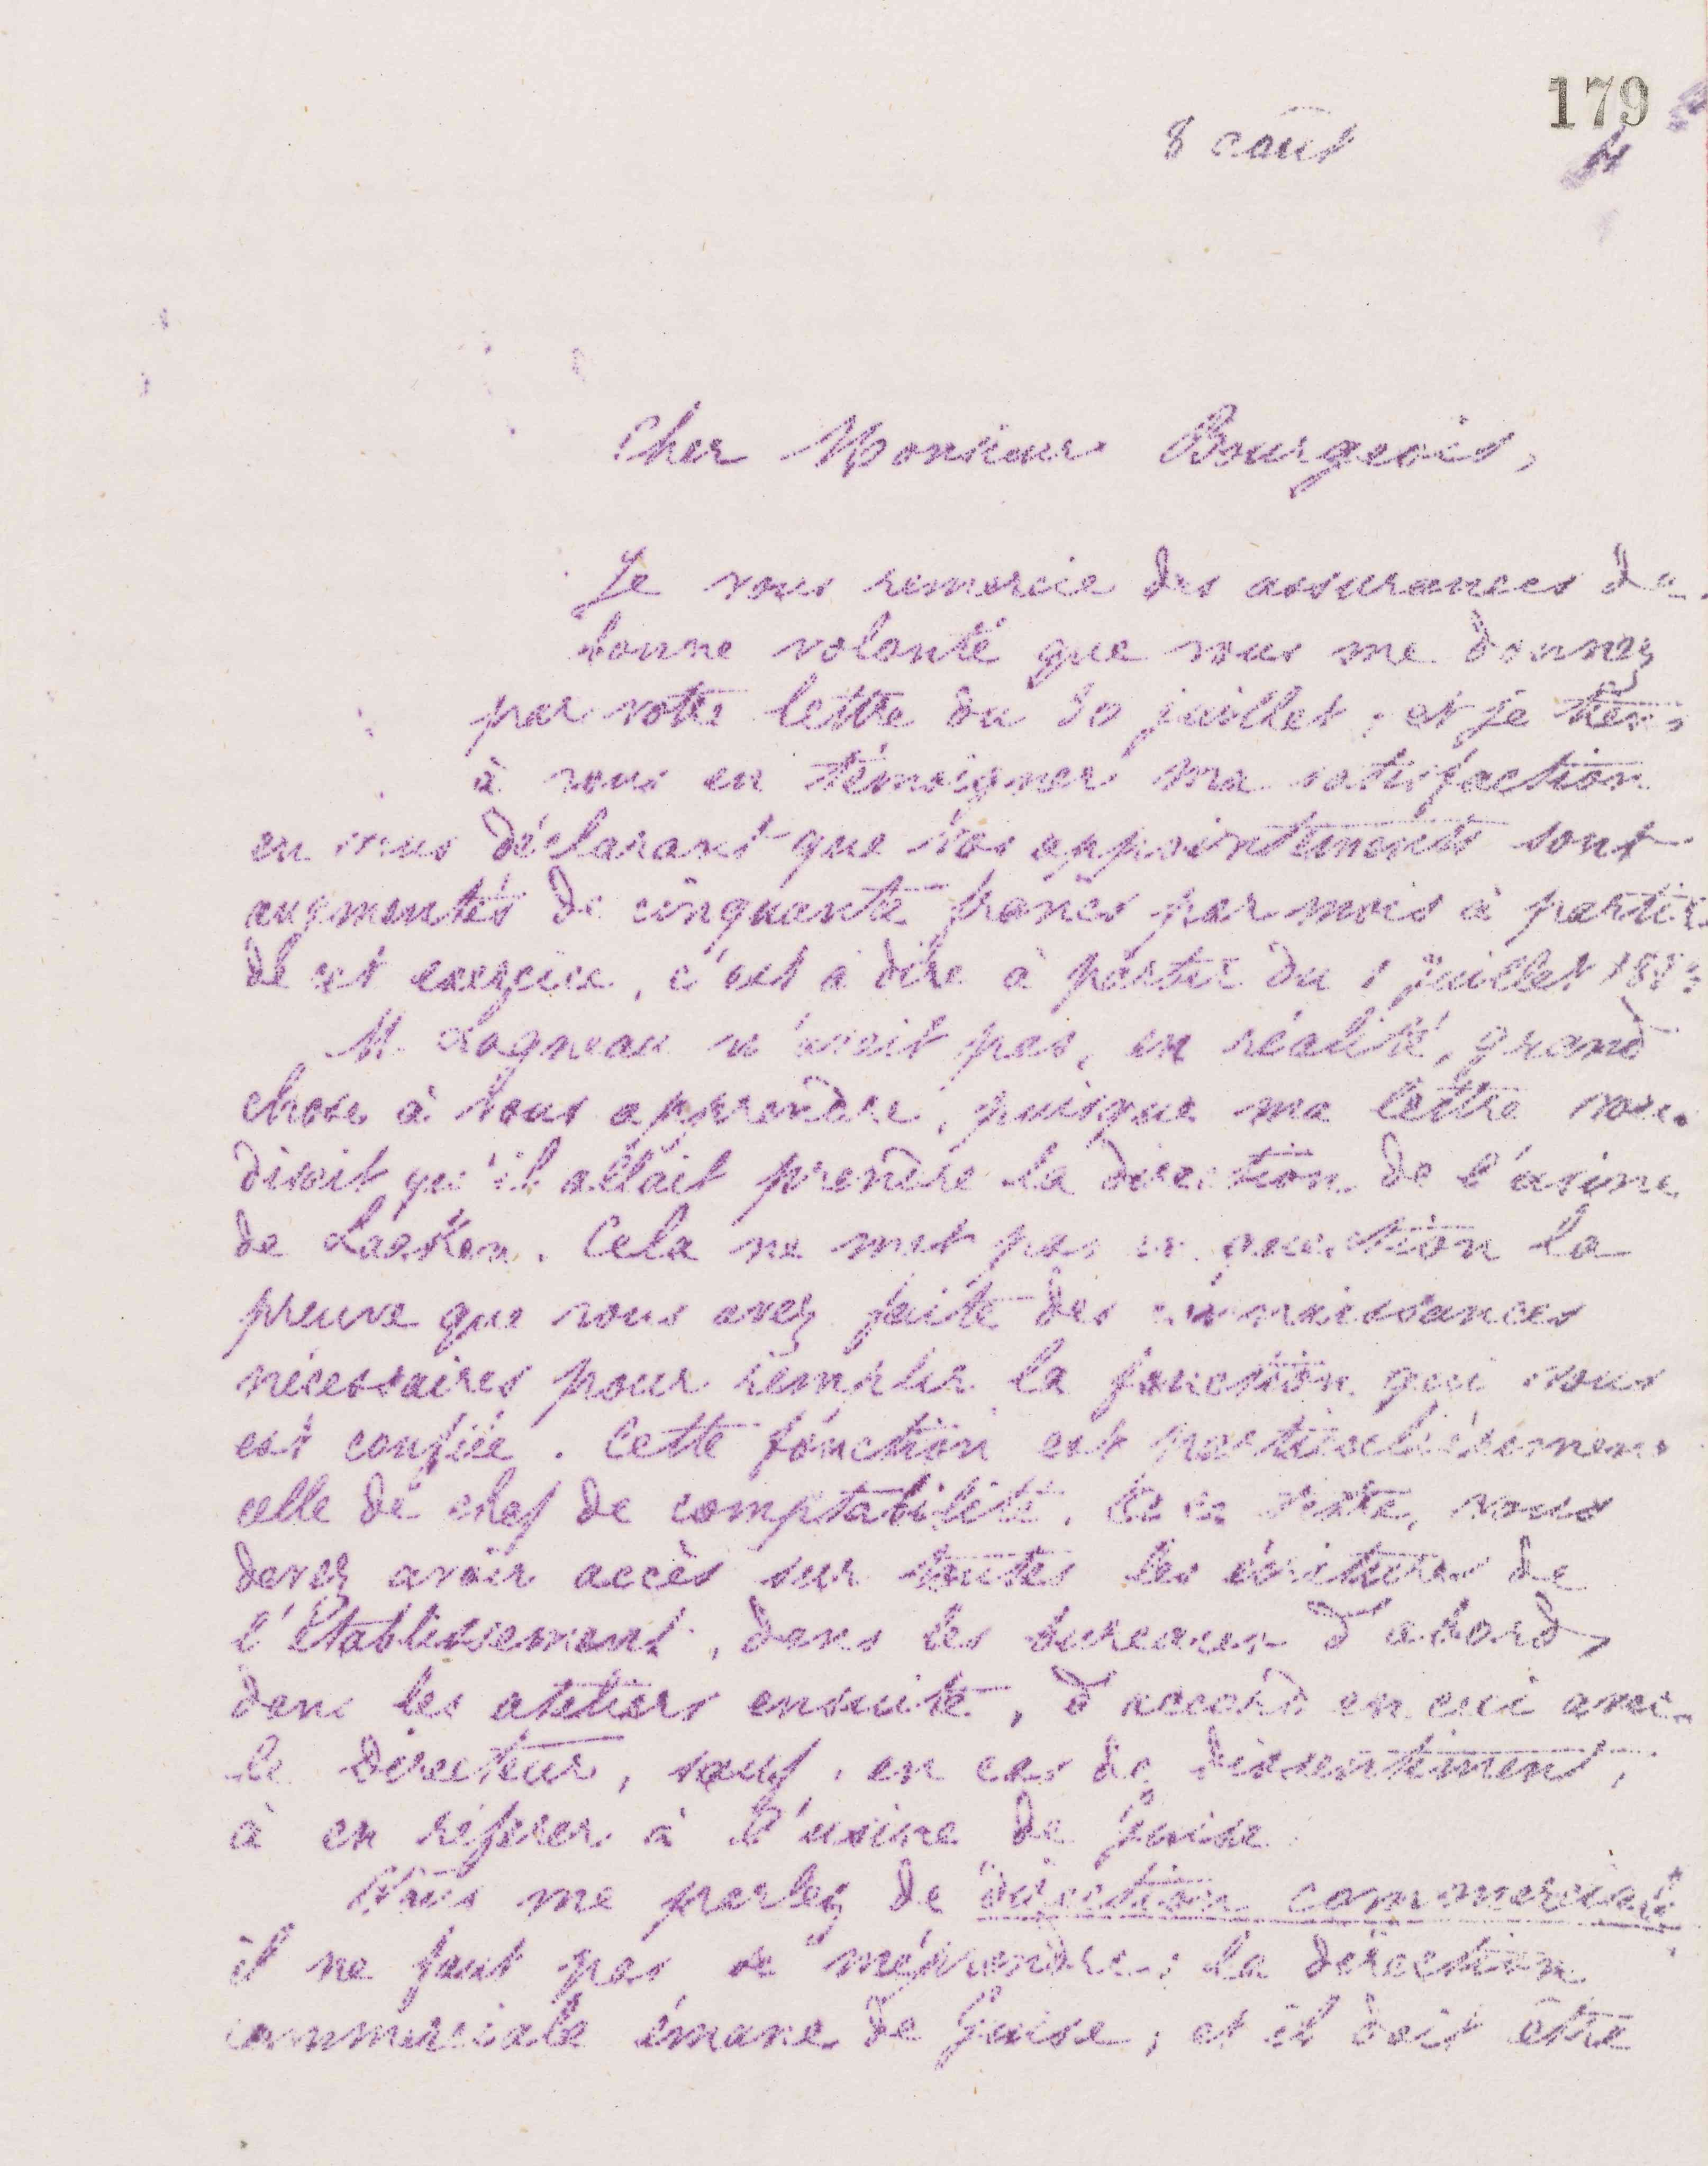 179
8 août
Cher Monsieur Bourgeois,
Je vous remercie des assurances de
bonne volonté que vous me donnez
par votre lettre du 30 juillet, et je tiens
à vous en témoigner ma satisfaction
en vous déclarant que vos appointements sont
augmentés de cinquante francs par mois à partir
de cet exercice, c'est à dire à partir du 1 juillet
M. Lagneau n'avait pas, en réalité, grand
chose à vous apprendre, puisque ma lettre vous
disait qu'il allait prendre la direction de l'usine
de Laeken. Cela ne met pas en question la
preuve que vous avez faite des connaissances
nécessaires pour remplir la fonction qui vous
est confiée. Cette fonction est particulièrement
celle de chef de comptabilité. Ce titre, vous
devez avoir accès sur toutes les écritures de
l'Etablissement, dans les bureaux d'abord,
dans les ateliers ensuite, d'accord en ceci avec
le Directeur, sauf, en cas de dissentiment,
à en référer à l'usine de Guise.
Vous me parlez de direction commerciale
il ne faut pas se méprendre: la direction
commerciale émane de Guise, et il doit être